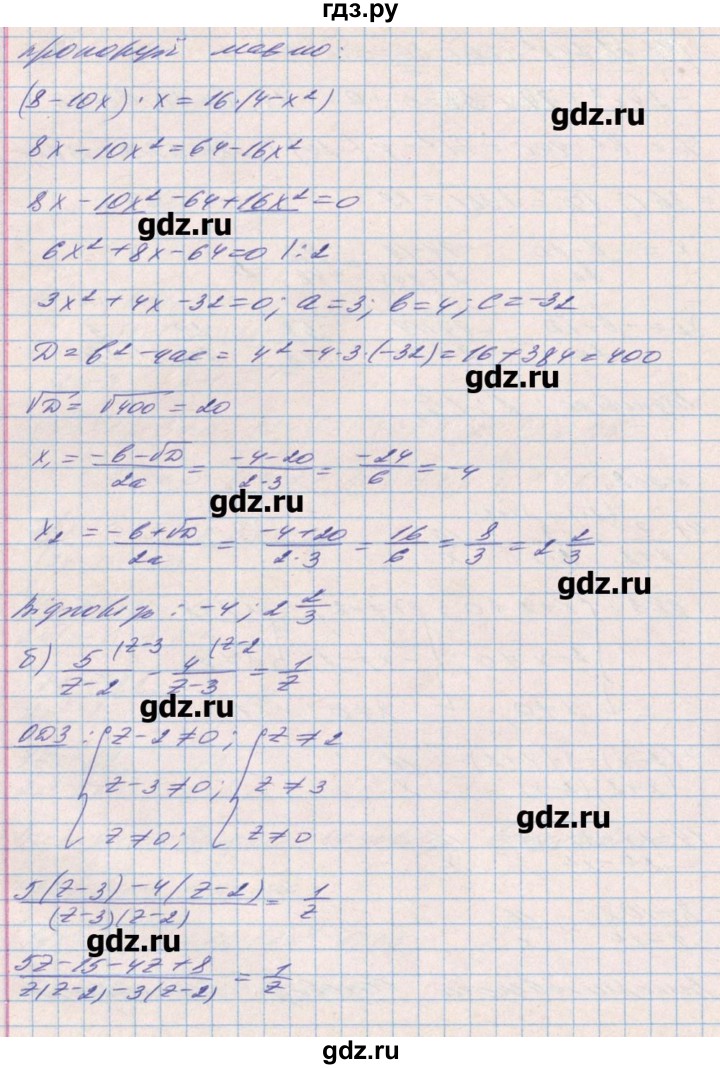 гдз.ру
пропорції маємо:
(8-10x)·x=16·(4-x²)
gdz.ru
8x-10x²=64-16x²
8x-10x²-64+16x²=0
gdz.ru
6x²+8x-64=0 |:2
3x²+4x-32=0; a=3; b=4; c=-32
D=b²-4ac=4²-4·3·(-32)=16+384=400
gdz.ru
√D=√400=20
x₁=(-b-√D)/2a=(-4-20)/(2·3)=-24/6=-4
gdz.ru
x₂=(-b+√D)/2a=(-4+20)/(2·3)=16/6=8/3=2 2/3
gdz.ru
Відповідь: -4; 2 2/3
б) 5/(z-2) (z-3 - 4/(z-3) (z-2 = 1/z
gdz.ru
ОДЗ: { z-2≠0; { z≠2
z-3≠0; z≠3
gdz.ru
z≠0; z≠0
(5(z-3)-4(z-2))/((z-3)(z-2))=1/z
gdz.ru
(5z-15-4z+8)/(z(z-2)-3(z-2))=1/z
gdz.ru
gdz.ru